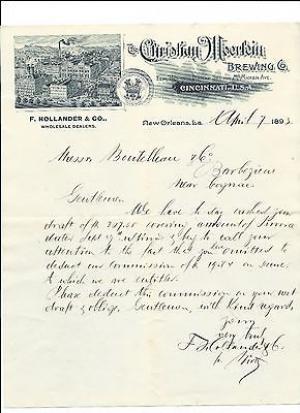 The Christian Moerlein
Brewing Co.
McMicken Ave.
Cincinnati, U.S.A.
F. Hollander & Co.,
Wholesale Dealers.
New Orleans, La April 7 1893
Messrs Boutelleau & Co
Barbezieux
Near Cognac
Gentlemen
We have to day cashed your
draft of covering amount of
to call your
attention to the fact that you omitted to
deduct our commission of on same,
to which we are entitled.
Please deduct this commission on your next
draft & oblige. Gentlemen, with kind regards,
Yours
very truly
F Hollander & Co